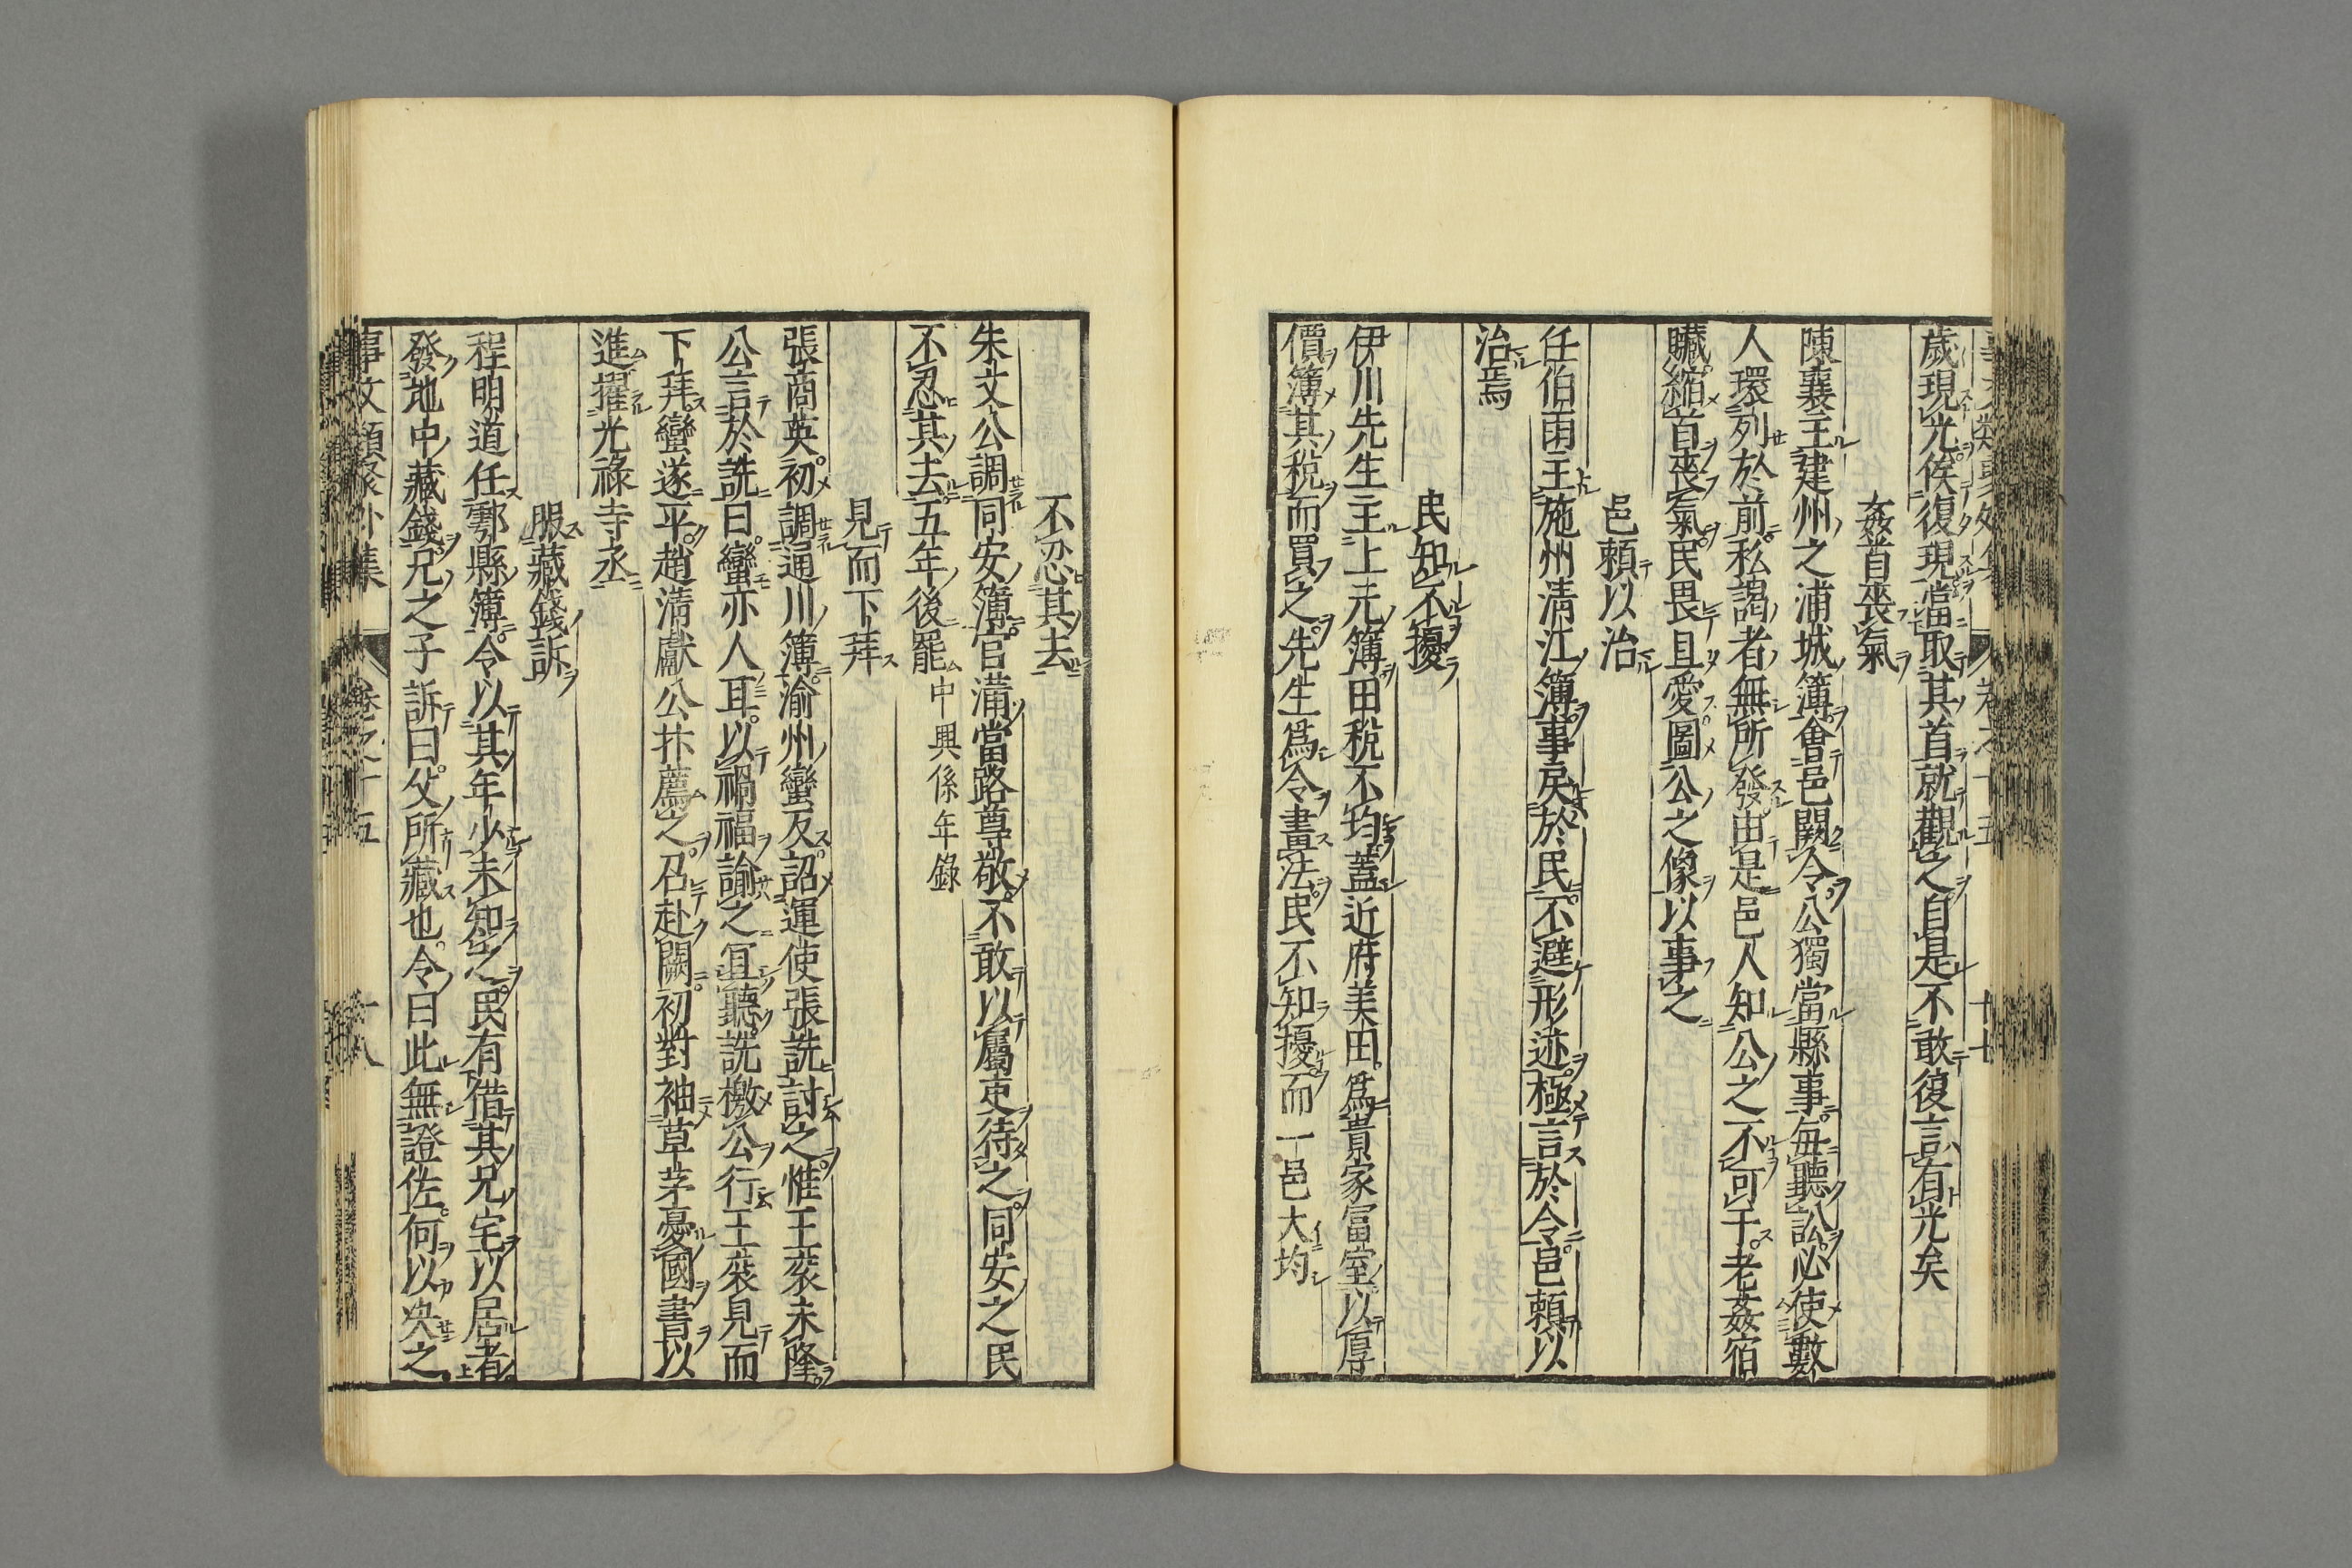 歲現光俟復現當取其首就觀之自是不敢復言有光矣
姦首喪氣
陳襄主建州之浦城簿會邑闕令公獨當縣事每聽訟必使數
人環列於前私謁者無所發由是邑人知公之不可干老姦宿
贓縮首喪氣民畏且愛圖公之像以事之
邑頼以治
任伯雨主施州清江簿事戻於民不避形迹極言於令邑頼以
治焉
民知不擾
伊川先生主上元簿田稅不均蓋近府美田爲貴家富室以厚
價簿其稅而買之先生爲令畫法民不知擾而一邑大均
不忍其去
朱文公調同安簿官滿當路尊敬不敢以屬吏待之同安之民
不忍其去五年後罷中興係年錄
見而下拜
張商英初調通川簿渝州蠻反詔運使張詵討之惟王衮未降
公言於詵曰蠻亦人耳以禍福諭之宜聽詵檄公行王衮見而
下拜蠻遂平趙清獻公抃薦之召赴闕初對袖草茅憂國書以
進擢光祿寺丞
服藏錢訴
程明道任鄠縣簿令以其年少未知之民有借其兄宅以居者
發地中藏錢兄之子訴曰父所藏也令曰此無證佐何以决之
事文類聚外集 卷之十五 十八